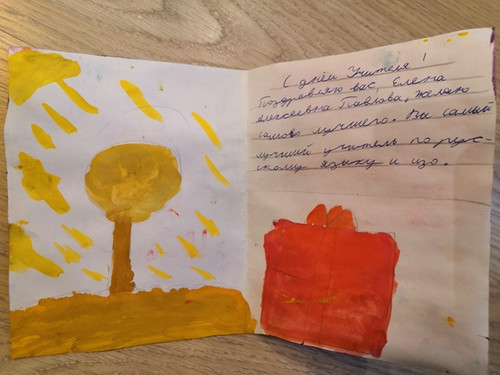 С днём Учителя!
Поздравляю вас, Елена
Алексеевна Павлова, желаю
самого лучшего. Вы самый
лучший учитель по рус-
скому языку и изо.